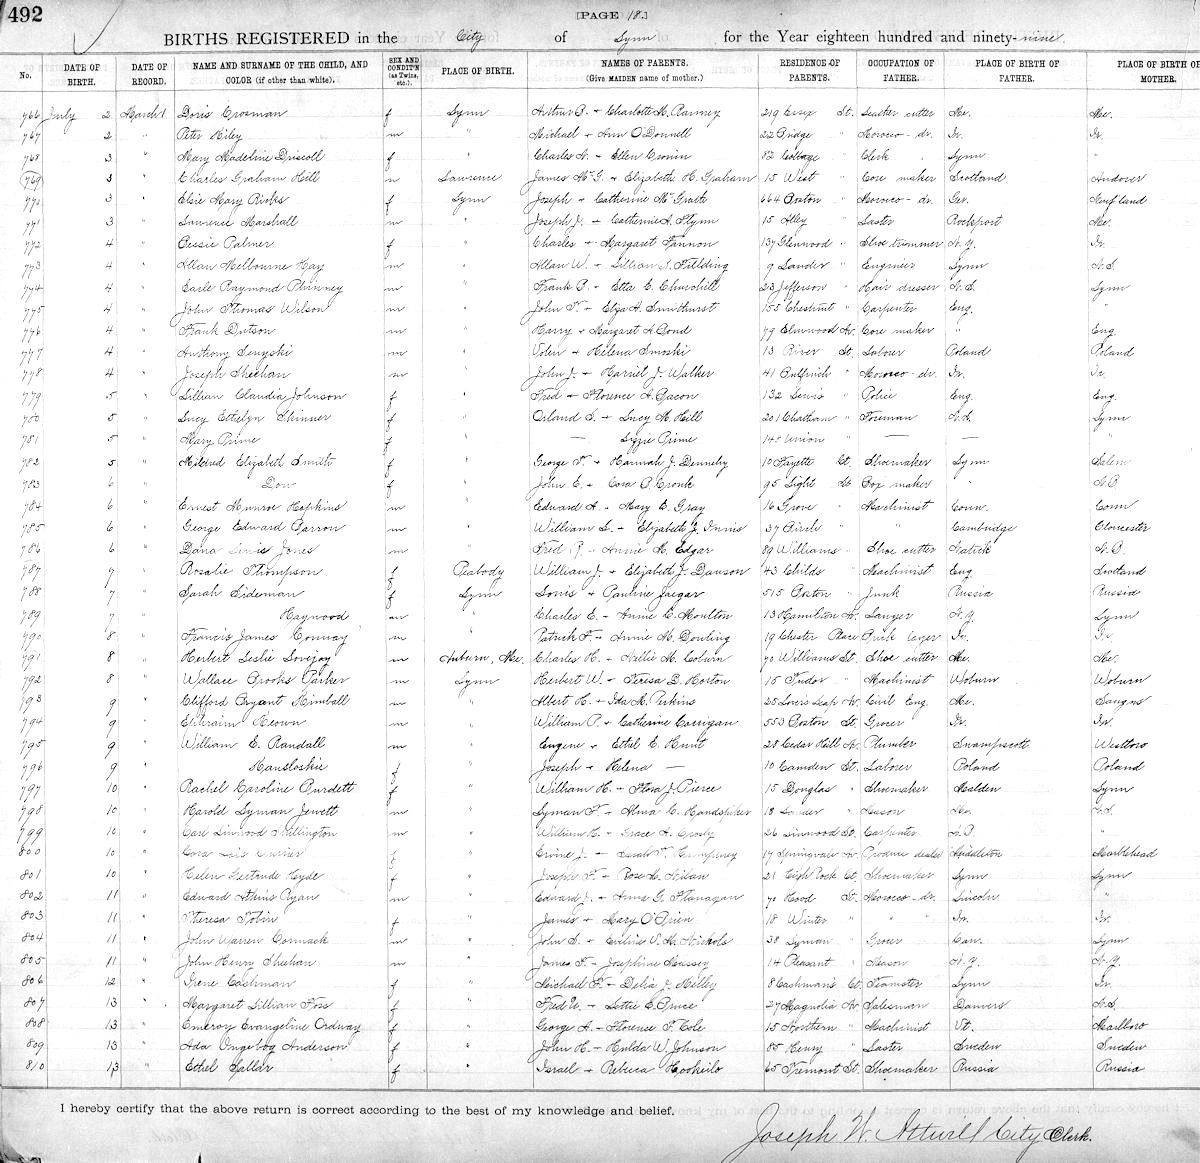 492
[PAGE 18.]
BIRTHS REGISTERED in the City of Lynn for the Year eighteen hundred and ninety-nine.
No. DATE OF BIRTH. DATE OF RECORD. NAME AND SURNAME OF THE CHILD, AND COLOR (if other than white). SEX AND CONDIT'N (as Twins, etc.). PLACE OF BIRTH. NAMES OF PARENTS. (Give MAIDEN name of mother.) RESIDENCE OF PARENTS. OCCUPATION OF FATHER. PLACE OF BIRTH OF FATHER. PLACE OF BIRTH OF MOTHER.
766 July 2 March 1 Doris Crosman f Lynn Arthur B. + Charlotte M. Ranney 219 Essex St. Leather cutter Me. Me.
767 2 " Peter Riley m " Michael + Ann O'Donnell 22 " Morocco dr. Ir. Ir.
768 3 " Mary Madeline Driscoll f " Charles N. + Ellen Cronin 82 Cottage " Clerk Lynn "
769 3 " Charles Graham Hill m Lawrence James McG. + Elizabeth H. Graham 15 West " Core maker Scotland Andover
770 3 " Elsie Mary f Lynn Joseph + Catherine 664 Boston " Morocco dr. Ger. Newf'land
771 3 " Lawrence Marshall m " Joseph J. + Catherine A. Flynn 15 Alley " Laster Rockport Me.
772 4 " Bessie Palmer f " Charles + Margaret Fannon 137 Glenwood " Shoe trimmer N.Y. Ir.
773 4 " Allan Melbourne Hay m " Allan W. + Lillian S. Fillding 9 " Engineer Lynn N.S.
774 4 " Earle Raymond Phinney m " Frank B. + Etta E. Churchill 23 Jefferson " Hair dresser N.S. Lynn
775 4 " John Thomas Wilson m " John T. + Eliza A. Smithurst 155 Chestnut " Carpenter Eng. "
776 4 " Frank Dutson m " Harry + Margaret A. Bond 79 Elmwood Av. Core maker " Eng.
777 4 " Anthony m " + Helena 13 River St. Laborer Poland Poland
778 4 " Joseph Sheehan m " John J. + Harriet J. Walker 41 Bulfinch " Morocco dr. Ir. Ir.
779 5 " Lillian Claudia Johnson f " Fred + Florence A. Bacon 132 Lewis " Police Eng. Eng.
780 5 " Lucy Ethelyn Skinner f " Orland S. + Lucy M. Hill 201 Chatham " Foreman N.S. Lynn
781 5 " Mary Prime f " — Lizzie Prime 148 Union " — — "
782 5 " Mildred Elizabeth Smith f " George F. + Hannah J. Dennehy 10 Fayette Ct. Shoemaker Lynn Salem
783 6 " Dow f " John E. + Cora P. Cronk 95 Light St. Box maker " N.B.
784 6 " Ernest Munroe Hopkins m " Edward A. + Mary E. Gray 16 Grove " Machinist Conn. Conn
785 6 " George Edward Barron m " William L. + Elizabeth J. Innis 37 Birch " " Cambridge Gloucester
786 6 " Dana Lewis Jones m " Fred R. + Annie M. Edgar 89 Williams " Shoe cutter Natick N.B.
787 7 " Rosalie Thompson f Peabody William J. + Elizabeth J. Dawson 43 Childs " Machinist Eng. Scotland
788 7 " Sarah Sideman f Lynn Louis + Pauline Jaegar 515 Boston " Junk Russia Russia
789 7 " Haywood m " Charles E. + Annie E. Moulton 13 Hamilton Av. Lawyer N.Y. Lynn
790 8 " Francis James Conway m " Patrick F. + Annie M. Dowling 19 Chester Place Brick layer Ir. Ir.
791 8 " Herbert Leslie Lovejoy m Auburn, Me. Charles H. + Nellie M. Coburn 70 Williams St. Shoe cutter Me. Me.
792 8 " Wallace Brooks Parker m Lynn Herbert W. + Teresa B. Horton 15 Tudor " Machinist Woburn Woburn
793 9 " Clifford Bryant Kimball m " Albert H. + Ida M. Perkins 25 Lovers Leap Av. Civil Eng. Me. Saugus
794 9 " Ephraim Keown m " William P. + Catherine Corrigan 553 Boston St. Grocer Ir. Ir.
795 9 " William E. Randall m " Eugene + Ethel E. Hunt 28 Cedar Hill Av. Plumber Swampscott Westboro
796 9 " f " Joseph + Helena — 10 Camden St. Laborer Poland Poland
797 10 " Rachel Caroline Burdett f " William H. + Flora J. Pierce 15 Douglas " Shoemaker Malden Lynn
798 10 " Harold Lyman Jewett m " Lyman F. + Alma E. Handspiker 18 " Mason N.S.
799 10 " Carl Linwood Phillington m " William H. + Grace A. Crosby 26 Linwood St. Carpenter N.B. "
800 10 " Cora Lois Currier f " Ervine J. + Sarah F. Humphrey 17 Springvale Av. Produce dealer Middleton Marblehead
801 10 " Helen Gertrude Hyde f " Joseph F. + Rose M. Nilan 21 High Rock St. Shoemaker Lynn Lynn
802 11 " Edward Athins Ryan m " Edward J. + Anna G. Flanagan 70 Hood St. Morocco dr. Lincoln "
803 11 " Theresa Tobin f " James + Mary O'Brien 18 Winter " " " Ir. Ir.
804 11 " John Warren Cormack m " John S. + Eveline V. M. Nichols 38 Lyman " Grocer Can. Lynn
805 11 " John Henry Sheehan m " James F. + Josephine Massey 14 Pleasant " Mason N.Y. N.Y.
806 12 " Irene Cashman f " Michael F. + Delia J. Kelley 8 Cashman's Ct. Teamster Lynn Ir.
807 13 " Margaret Lillian Foss f " Fred W. + Lottie E. Bruce 27 Magnolia Av. Salesman Danvers N.S.
808 13 " Emeroy Evangeline Ordway f " George A. + Florence F. Cole 15 Northern " Machinist Vt. Marlboro
809 13 " Ada Ingeborg Anderson f " John H. + Hulda W. Johnson 85 Henry " Laster Sweden Sweden
810 13 " Ethel f " Israel + Rebeca 65 Tremont St. Shoemaker Russia Russia
I hereby certify that the above return is correct according to the best of my knowledge and belief.
Joseph W. Attwill City Clerk.